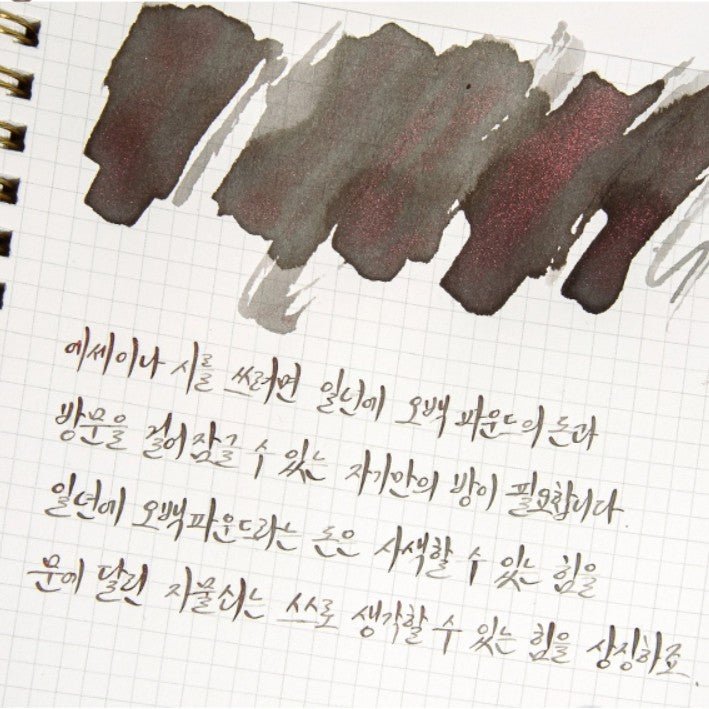 에세이나 시를 쓰려면 일년에 오백 파운드의 돈과
방문을 걸어 잠글 수 있는 자기만의 방이 필요합니다.
일년에 오백파운드라는 돈은 사색할 수 있는 힘을
문에 달린 자물쇠는 스스로 생각할 수 있는 힘을 상징하죠.